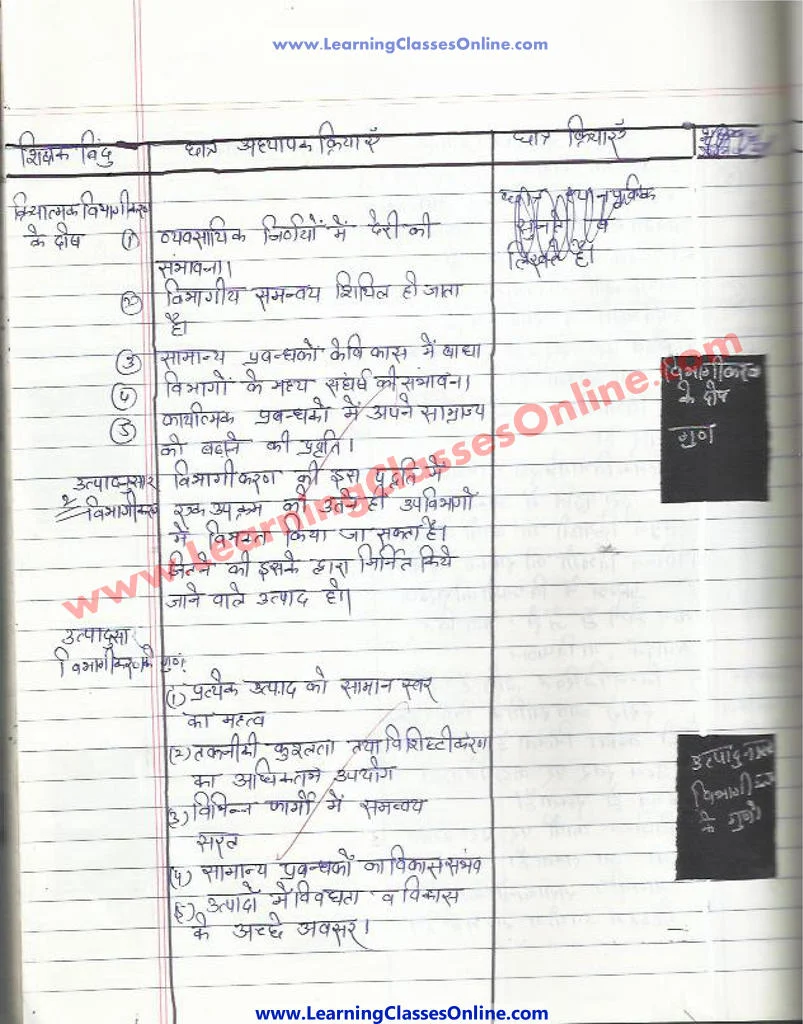 www.LearningClassesOnline.com
शिक्षक बिंदु छात्र अध्यापक क्रियाएँ छात्र क्रियाएँ
क्रियात्मक विभागीकरण
के दोष
(1) व्यवसायिक निर्णयों में देरी की
संभावना।
(2) विभागीय समन्वय शिथिल हो जाता
है।
(3) सामान्य प्रबन्धकों के विकास में बाधा
(4) विभागों के मध्य संघर्ष की संभावना।
(5) कार्यात्मक प्रबन्धकों में अपने साम्राज्य
को बढ़ाने की प्रवृति।
ध्यानपूर्वक
सुनते व
लिखते है।
विभागीकरण
के दोष
गुण
उत्पादनुसार
2 विभागीकरण
विभागीकरण की इस पद्वति में
एक उपक्रम को उतने ही उपविभागों
में विभक्त किया जा सकता है।
जितने की इसके द्वारा निर्मित किये
जाने वाले उत्पाद हो।
www.LearningClassesOnline.com
उत्पादुसार
विभागीकरण के गुण
(1) प्रत्येक उत्पाद को सामान स्तर
का महत्व
(2) तकनीकी कुशलता तथा विशिष्टीकरण
का अधिकतम उपयोग
(3) विभिन्न कार्यो में समन्वय
सरल
(4) सामान्य प्रबन्धकों का विकास संभव
(5) उत्पादो में विवधता व विकास
के अच्छे अवसर।
उत्पादनुसार
विभागीकरण
के गुण
www.LearningClassesOnline.com